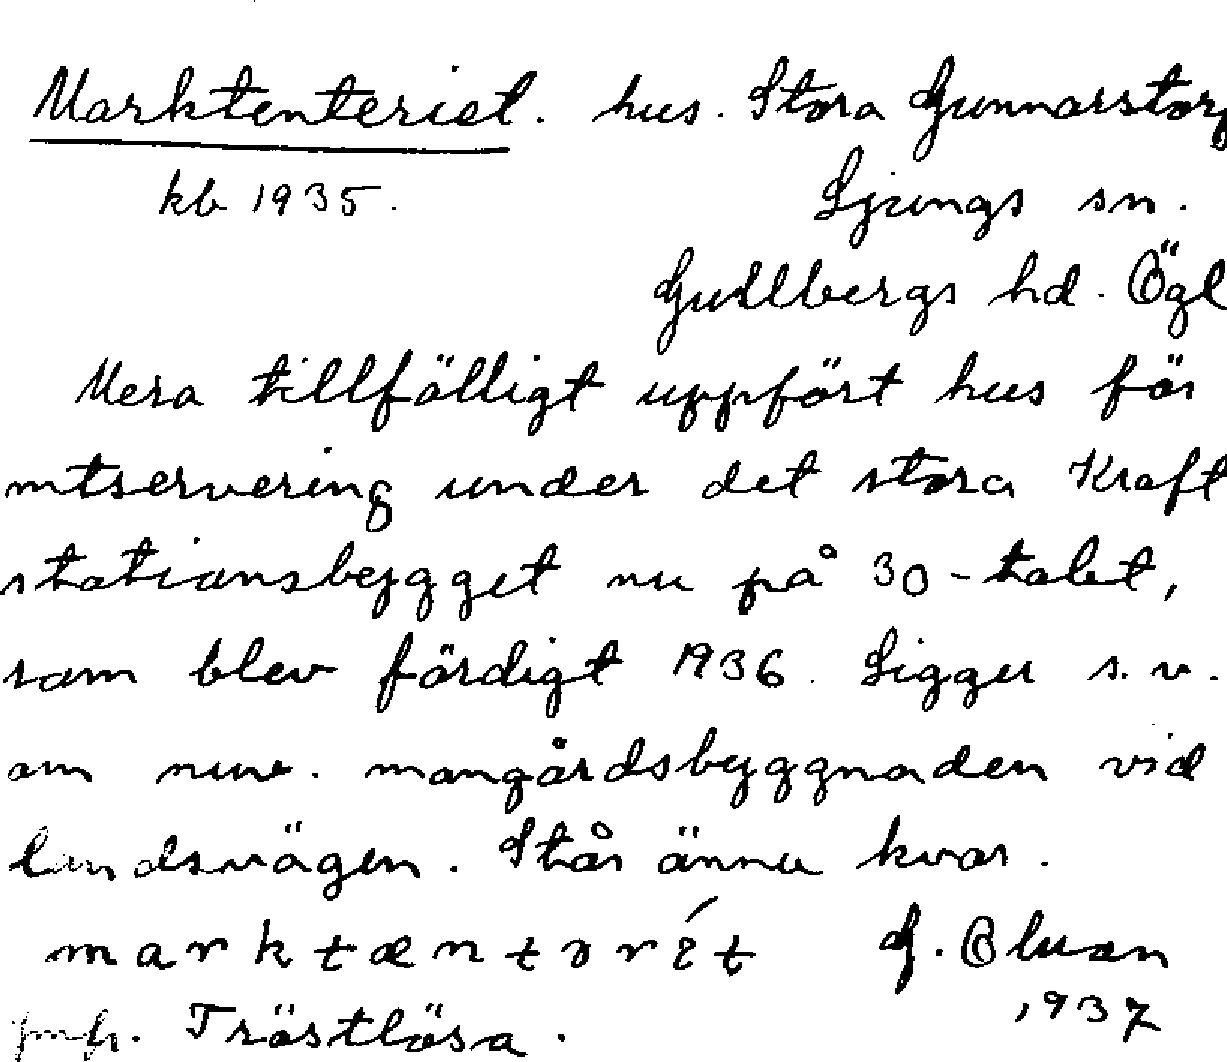 Marktenteriet. hus. Stora Gunnarstorp
kb 1935. Ljungs sn.
Gullbergs hd. Ögl
Mera tillfälligt uppfört hus för
mtservering under det stora Kraft
stationsbygget nu på 30-talet,
som blev färdigt 1936. Ligger s.v.
om nuv. mangårdsbyggnaden vid
landsvägen. Står ännu kvar.
marktæntərét G.
1937
jmfr. Tröstlösa.